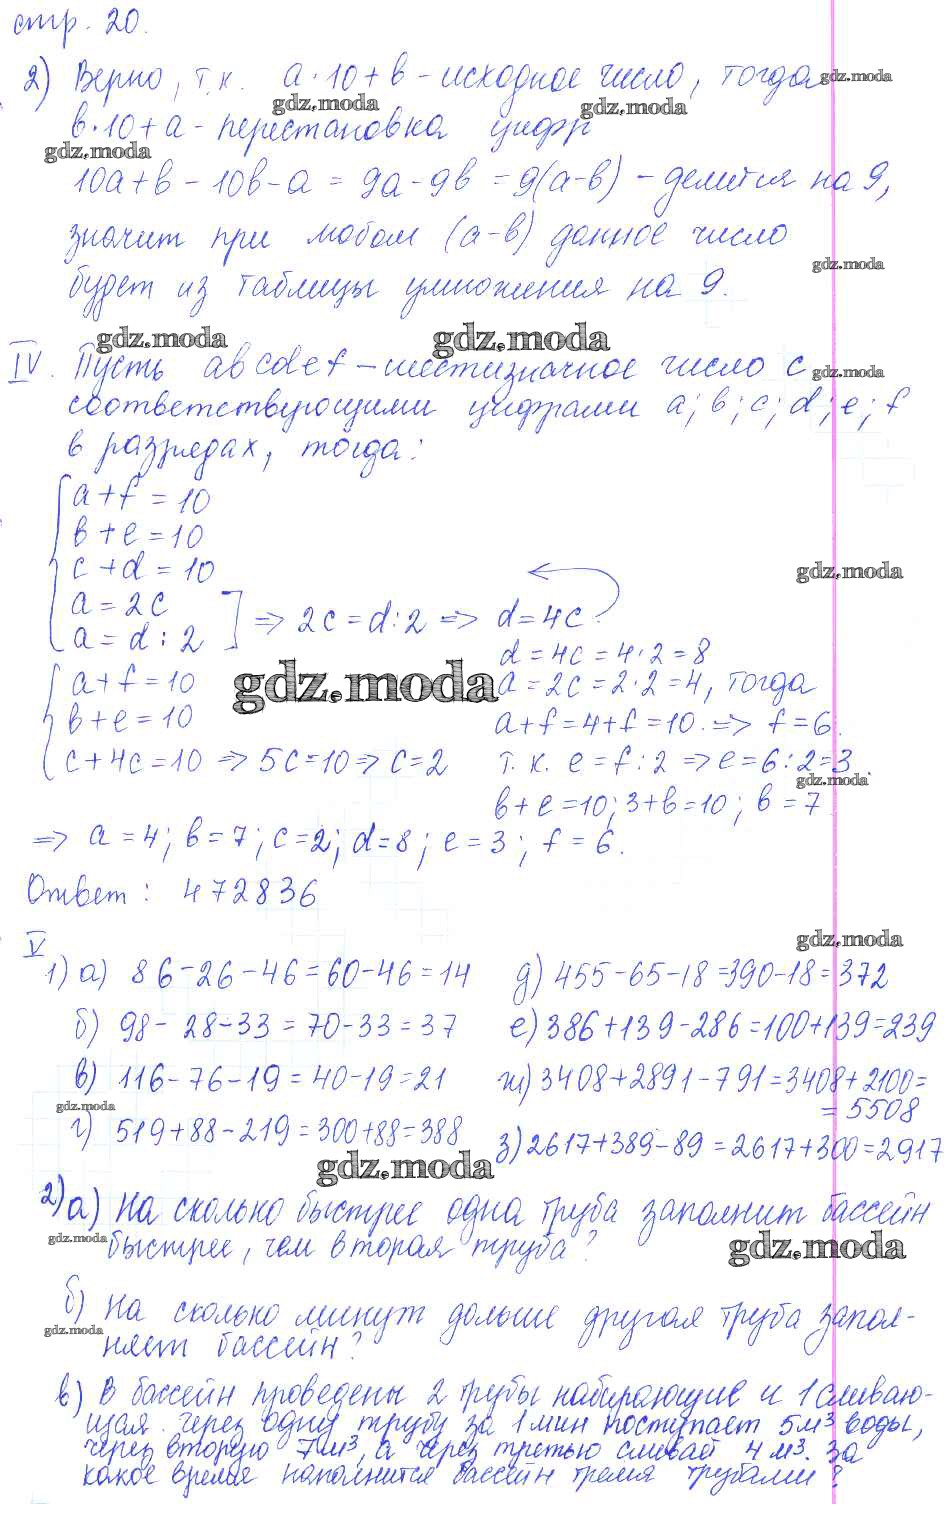 стр. 20.
2) Верно, т.к. a·10+b - исходное число, тогда
gdz.moda
gdz.moda
gdz.moda
b·10+a - перестановка цифр
gdz.moda
10a+b-10b-a=9a-9b=9(a-b) - делится на 9,
значит при любом (a-b) данное число
gdz.moda
будет из таблицы умножения на 9.
gdz.moda
gdz.moda
IV. Пусть abcdef - шестизначное число с
gdz.moda
соответствующими цифрами a; b; c; d; e; f
в разрядах, тогда:
a+f=10
b+e=10
c+d=10
gdz.moda
a=2c
a=d:2 => 2c=d:2 => d=4c
d=4c=4·2=8
a+f=10 a=2c=2·2=4, тогда
gdz.moda
b+e=10 a+f=4+f=10 => f=6.
c+4c=10 => 5c=10 => c=2 т.к. e=f:2 => e=6:2=3
gdz.moda
b+e=10; 3+b=10; b=7
=> a=4; b=7; c=2; d=8; e=3; f=6.
Ответ: 472836
gdz.moda
V
1) а) 86-26-46=60-46=14 д) 455-65-18=390-18=372
б) 98-28-33=70-33=37 е) 386+139-286=100+139=239
в) 116-76-19=40-19=21 ж) 3408+2891-791=3408+2100=
gdz.moda
=5508
г) 519+88-219=300+88=388 з) 2617+389-89=2617+300=2917
gdz.moda
2) а) На сколько быстрее одна труба заполнит бассейн
gdz.moda
быстрее, чем вторая труба?
gdz.moda
б) На сколько минут дольше другая труба запол-
gdz.moda
няет бассейн?
в) В бассейн проведены 2 трубы набирающие и 1 сливаю-
щая. Через одну трубу за 1 мин поступает 5м³ воды,
через вторую 7м³, а через третью сливай 4 м³. За
какое время наполнится бассейн тремя трубами?